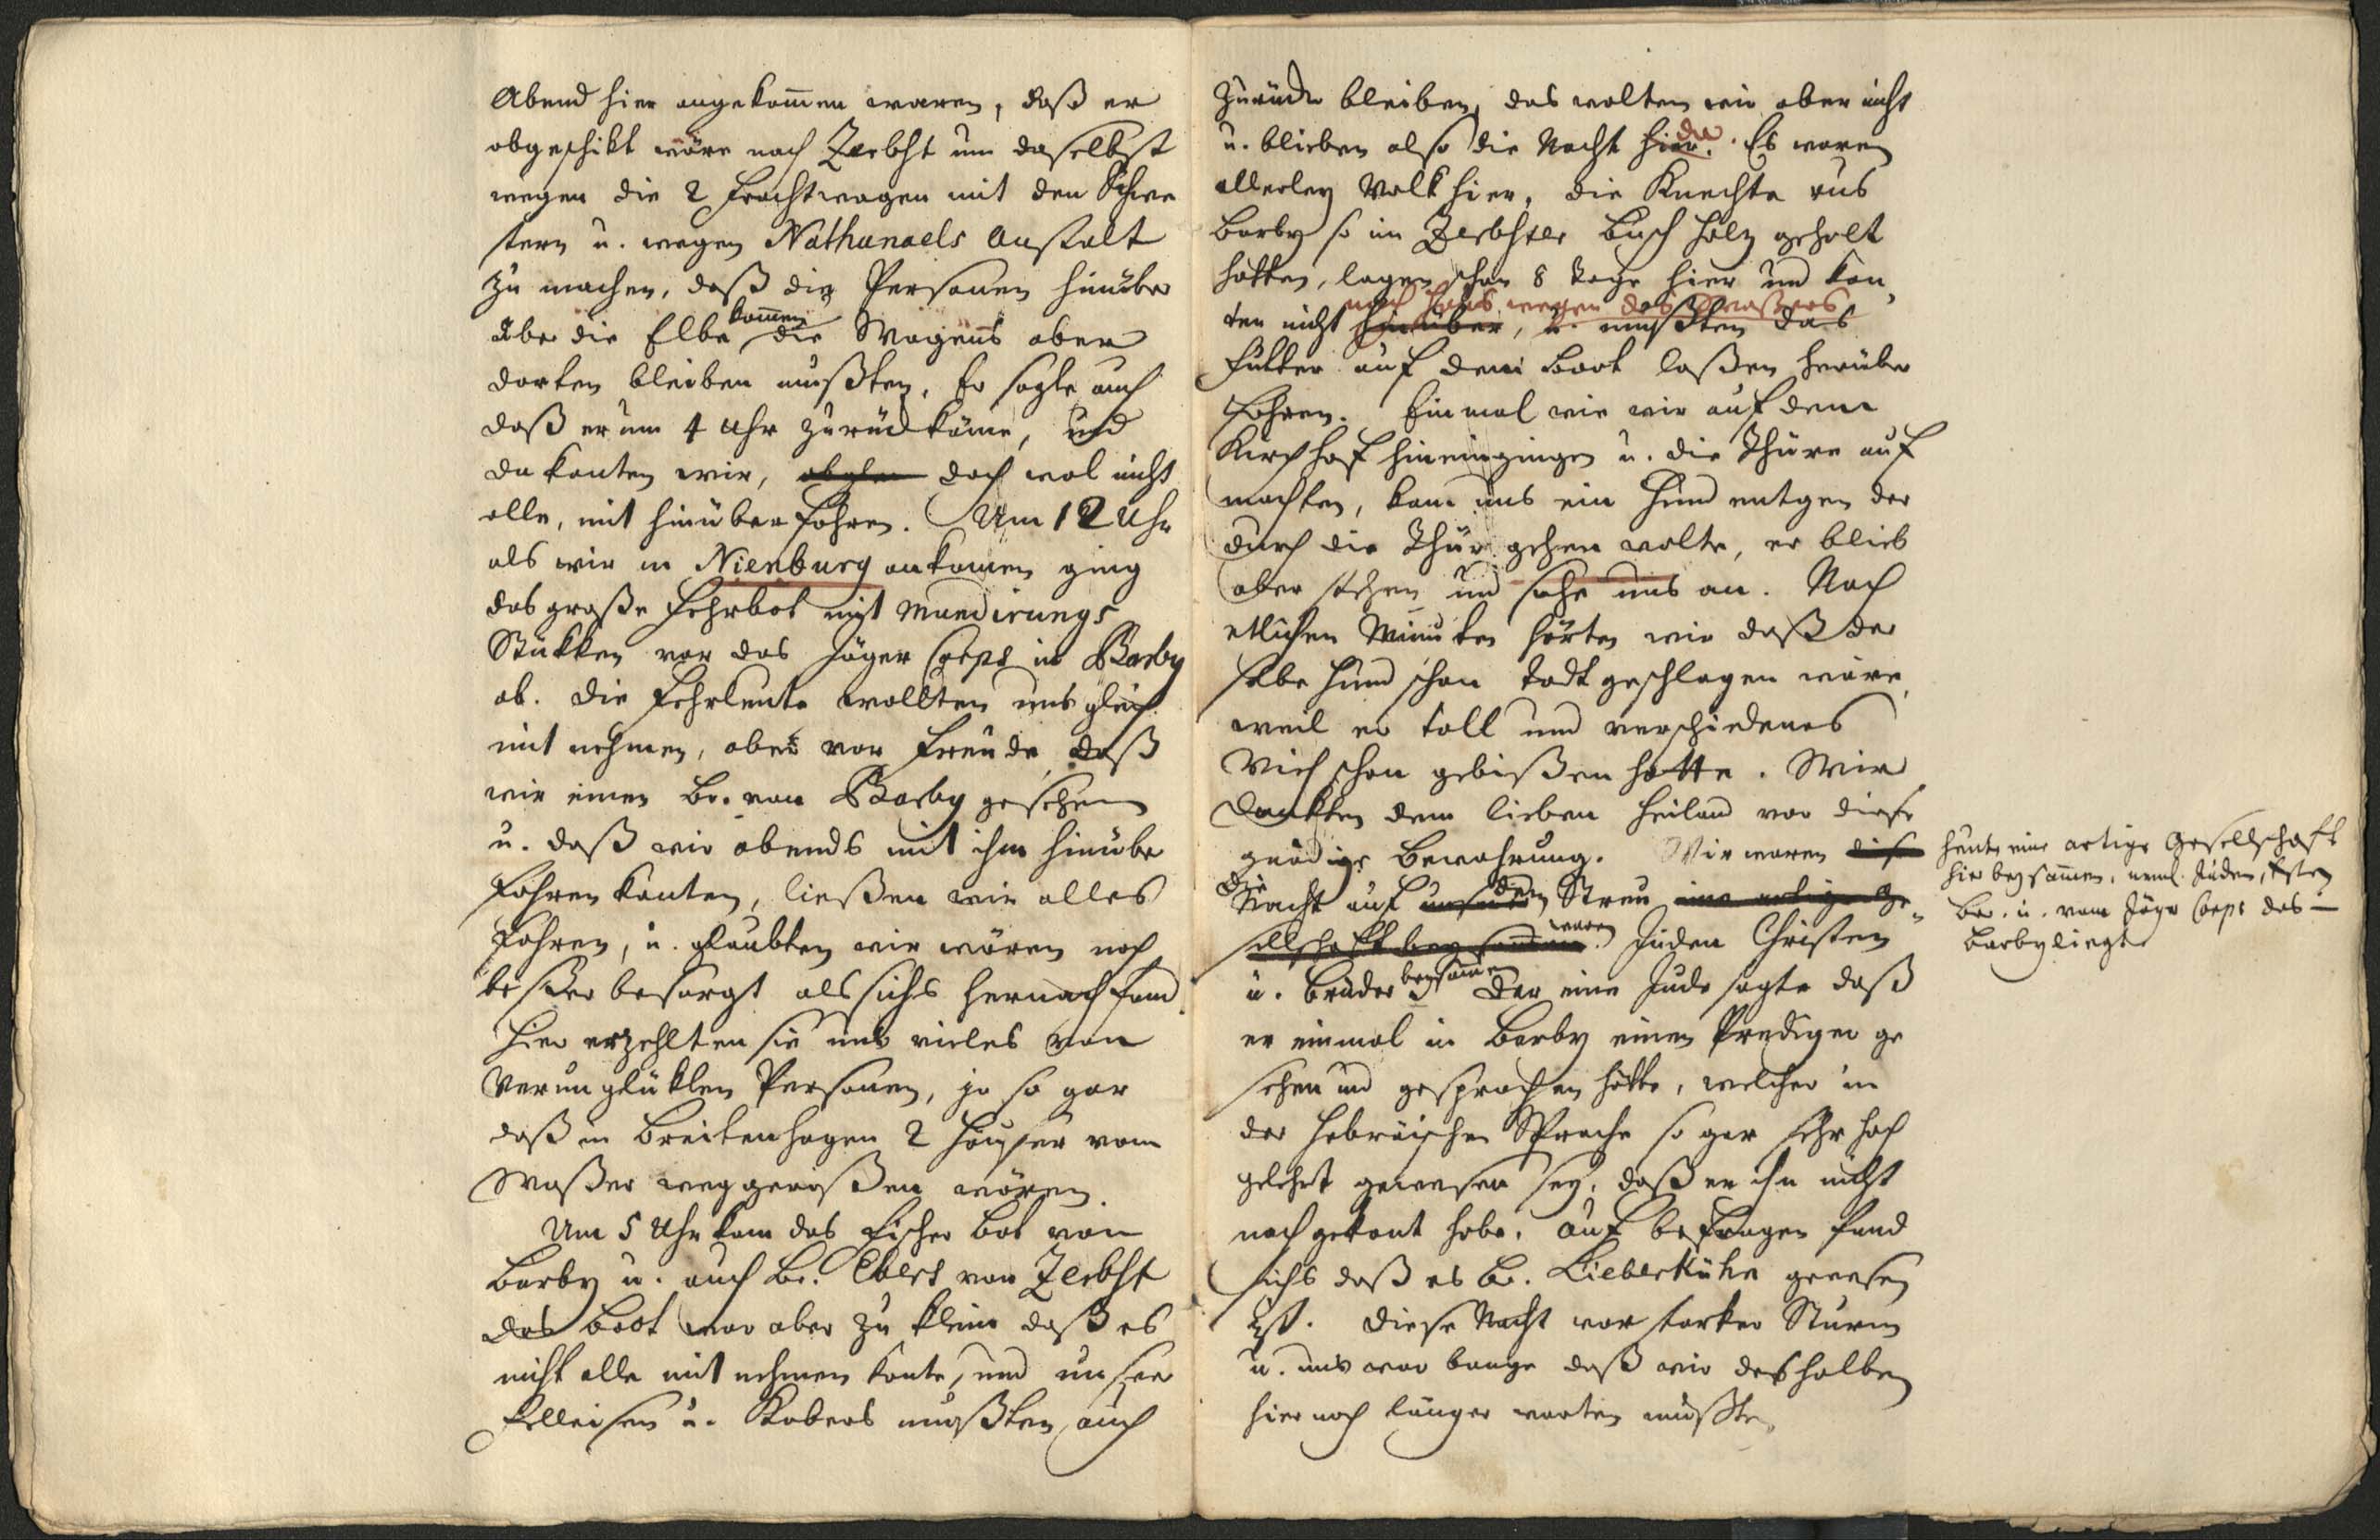 Abend hier angekom̅en waren, daß er
abgeschikt wäre nach Zerbst um daselbst
wegen die 2 Frachtwagen mit den Schwe
stern u. wegen Nathanaels Anstalt
zu machen, daß die Personen hinüber
über die Elbe kom̅en die Wagens aber
dorten bleiben mußten. Er sagte auch
daß er um 4 Uhr zurück käme, und
da konten wir, doch wol nicht
alle, mit hinüber fahren. Um 12 Uhr
als wir in Nienburg ankamen ging
das große Fehrbot mit Mundirungs
Stükken vor das Jäger Corps in Barby
ab. Die Fehrleute wollten uns gleich
mit nehmen, aber vor Freude daß
wir einen Br. von Barby gesehen
u. daß wir abends mit ihm hinüber
fahren konten, ließen wir alles
fahren, u. glaubten wir wären noch
beßer besorgt als sichs hernach fand.
Hier erzehlten sie uns vieles von
verunglükten Personen, ja so gar
daß in Breitenhagen 2 Häuser vom
Waßer weggerißen wären.
Um 5 Uhr kam das Fischer bot von
Barby u. auch Br. Ebert von Zerbst
das Boot war aber zu klein daß es
nicht alle mit nehmen konte, und unsere
Felleisen u. Kobers mußten auch
zurück bleiben, das wolten wir aber nicht
u. blieben also die Nacht hier. da. Es waren
allerley Volk hier, die Knechte aus
Barby so im Zerbster Busch Holz geholt
hatten, lagen schon 8 Tage hier und kon,
nach Haus wegen des Waßers
ten nicht hinüber, u. mußten das
Futter auf dem Boot laßen herüber
fahren. Einmal wie wir auf dem
Kirchhof hineingingen u. die Thüre auf
machten, kam uns ein Hund entgen der
durch die Thür gehen wolte, er blieb
aber stehen und sahe uns an. Nach
etlichen Minuten hörten wir daß der
selbe Hund schon todt geschlagen wäre,
weil er toll und verschiedenes
Vieh schon gebißen hatte. Wir
dankten dem lieben Heiland vor diese
gnädige Bewahrung. Wir waren diese
heute eine artige Gesellschaft
hier beysam̅en, neml. Juden, Chsten
Br. u. vom Jäger Corps das in
Barby liegt
die Nacht auf unsern den Streu eine artige Ge,
sellschaft beysam̅en waren Juden Christen
u. Brüder beysam̅en Der eine Jude sagte daß
er einmal in Barby einen Prediger ge
sehen und gesprochen hätte, welcher in
der Hebräischen Sprache so gar sehr hoch
gelehrt gewesen sey, daß er ihn nicht
nach gekont habe. Auf befragen fand
sichs daß es Br. Lieberkühn gewesen
ist. Diese Nacht war starker Sturm
u. uns war bange daß wir deshalben
hier noch länger warten mußten,